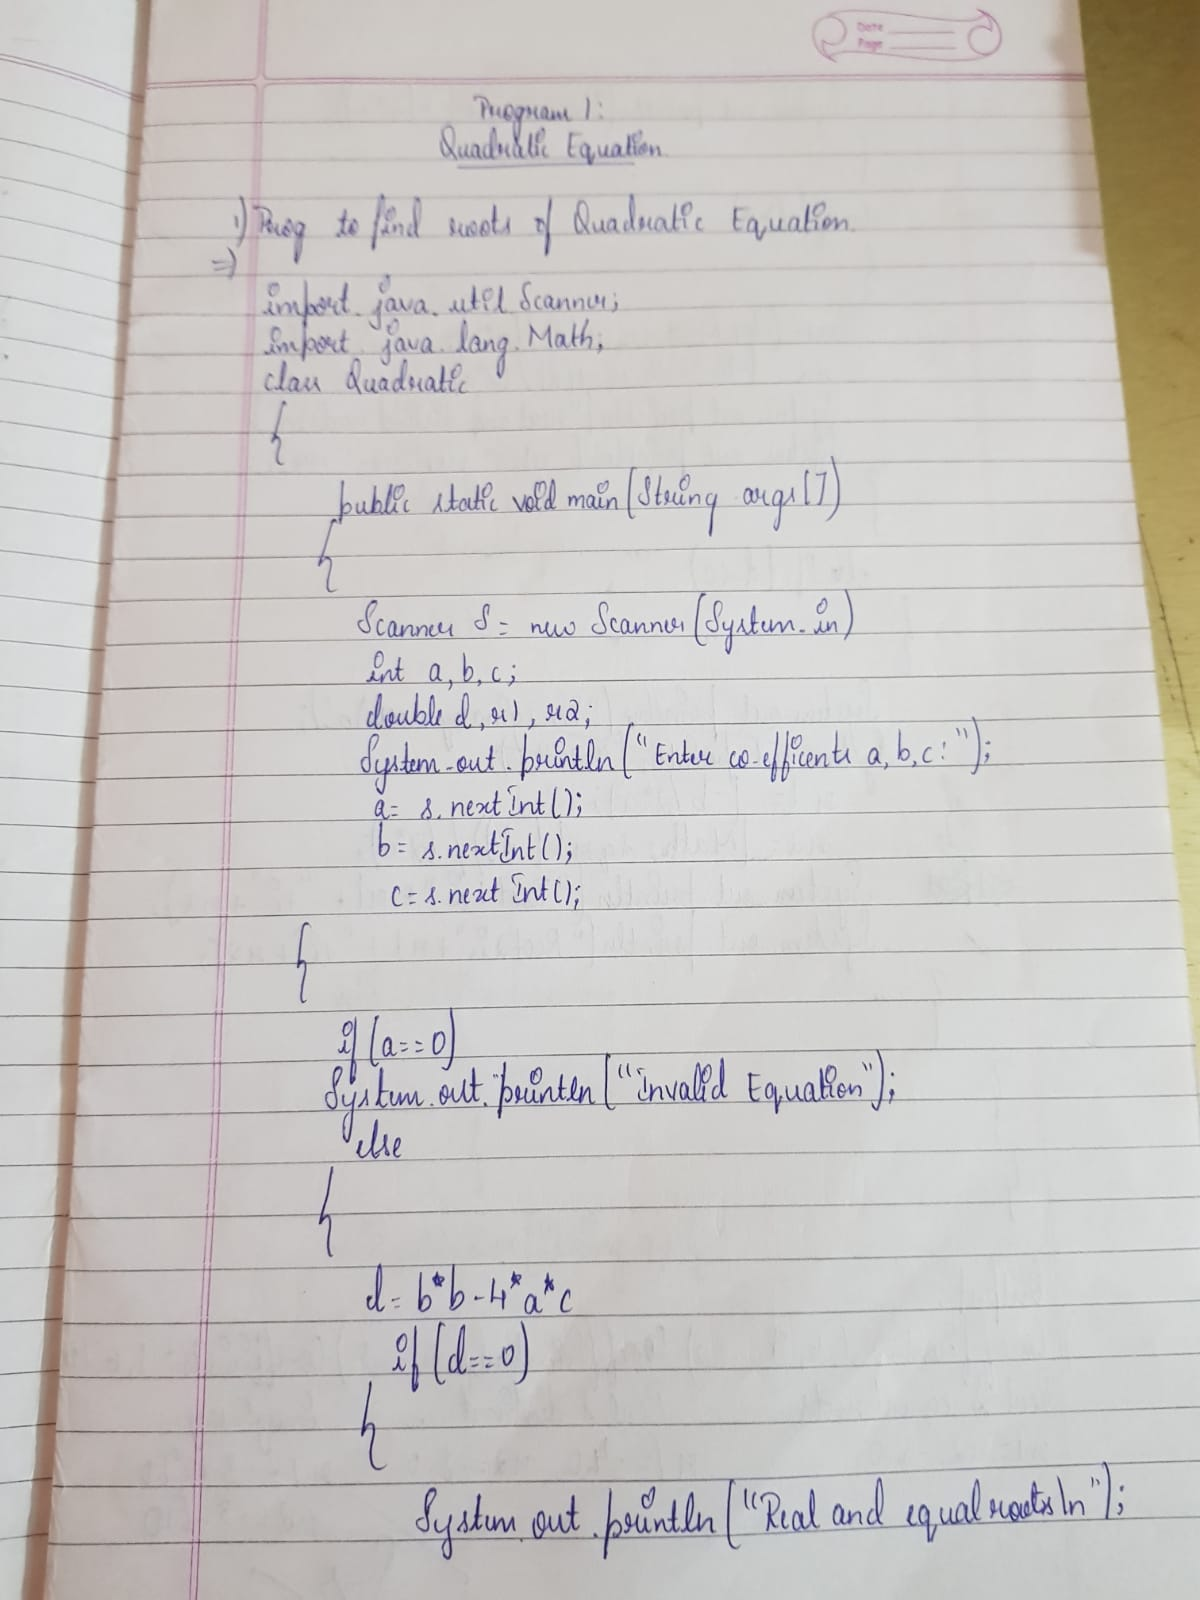 Date
Page
Program 1:
Quadratic Equation
1) Prog to find roots of Quadratic Equation.
=>
import java.util Scanner;
import java.lang.Math;
class Quadratic
{
public static void main(String args[])
{
Scanner S= new Scanner(System.in)
int a, b, c;
double d, r1, r2;
System.out.println("Enter co-efficents a, b, c:");
a= s.nextInt();
b= s.nextInt();
c= s.next Int();
{
if (a==0)
System.out.println("invalid Equation");
else
{
d= b*b-4*a*c
if (d==0)
{
System.out.println("Real and equal roots\n");